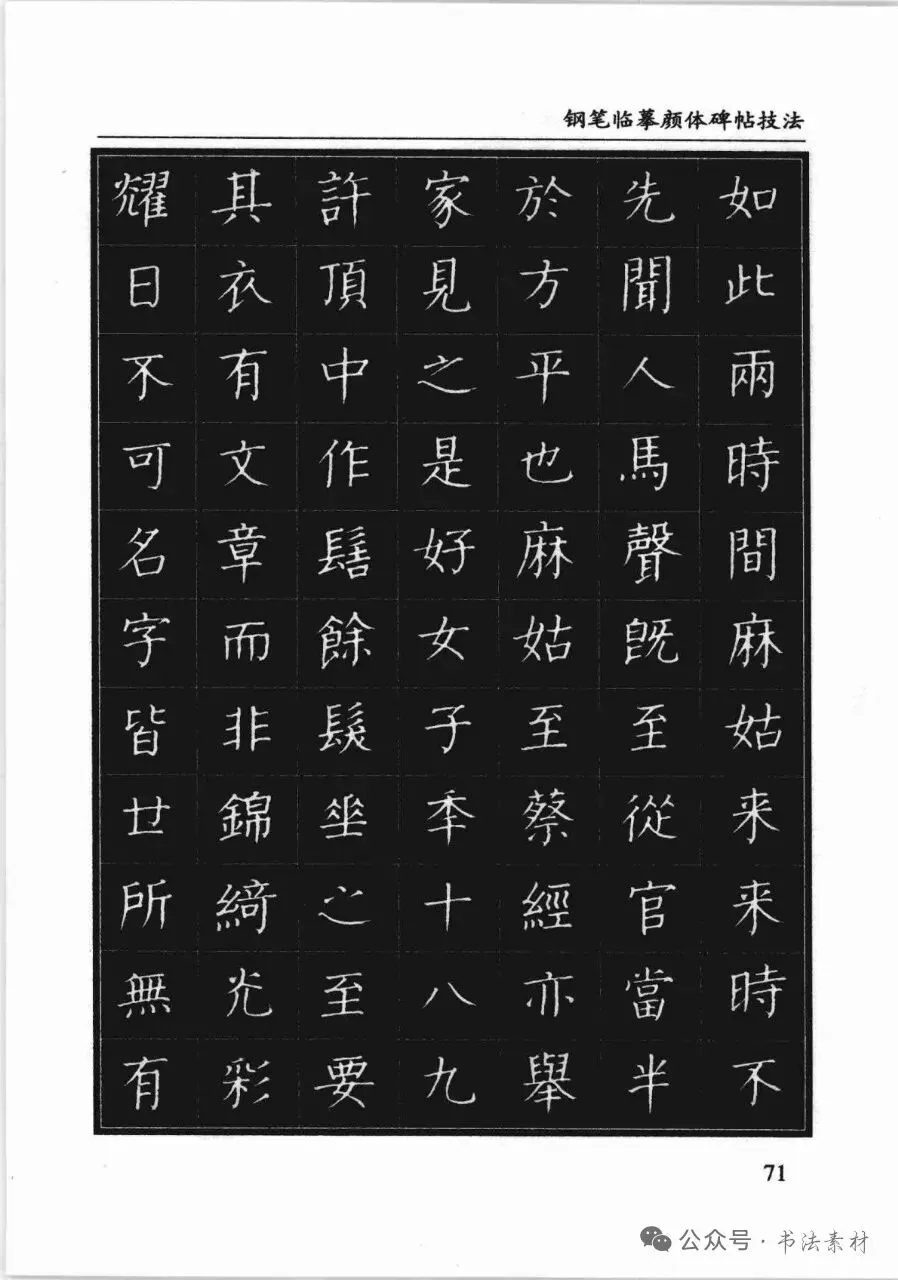 钢笔临摹颜体碑帖技法
如此兩時間麻姑来来時不
先聞人馬聲既至從官當半
於方平也麻姑至蔡經亦舉
家見之是好女子秊十八九
許頂中作髻餘髮垂之至要
其衣有文章而非錦綺光彩
耀日不可名字皆丗所無有
71
公众号·书法素材